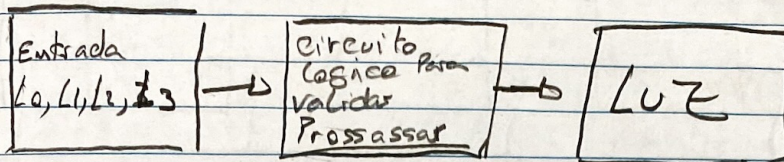 Entrada
L0, L1, L2, L3
circuito
Logico Para
validar
Prossassar
LUZ